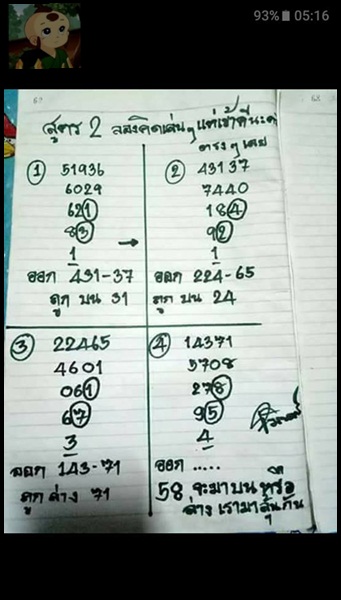 93% 05:16
สูตร 2 ลองคิดเล่นๆ แต่เข้าดีนะ
ตรงๆ เลย
① 51936
6029
621
83
1
ออก 431-37
ถูก บน 31
② 43137
7440
184
92
1
ออก 224-65
ถูก บน 24
③ 22465
4601
061
67
3
ออก 143-71
ถูก ล่าง 71
④ 14371
5708
278
95
4
ออก .....
58 จะมาบน หรือ
ล่าง เรามาลุ้นกัน